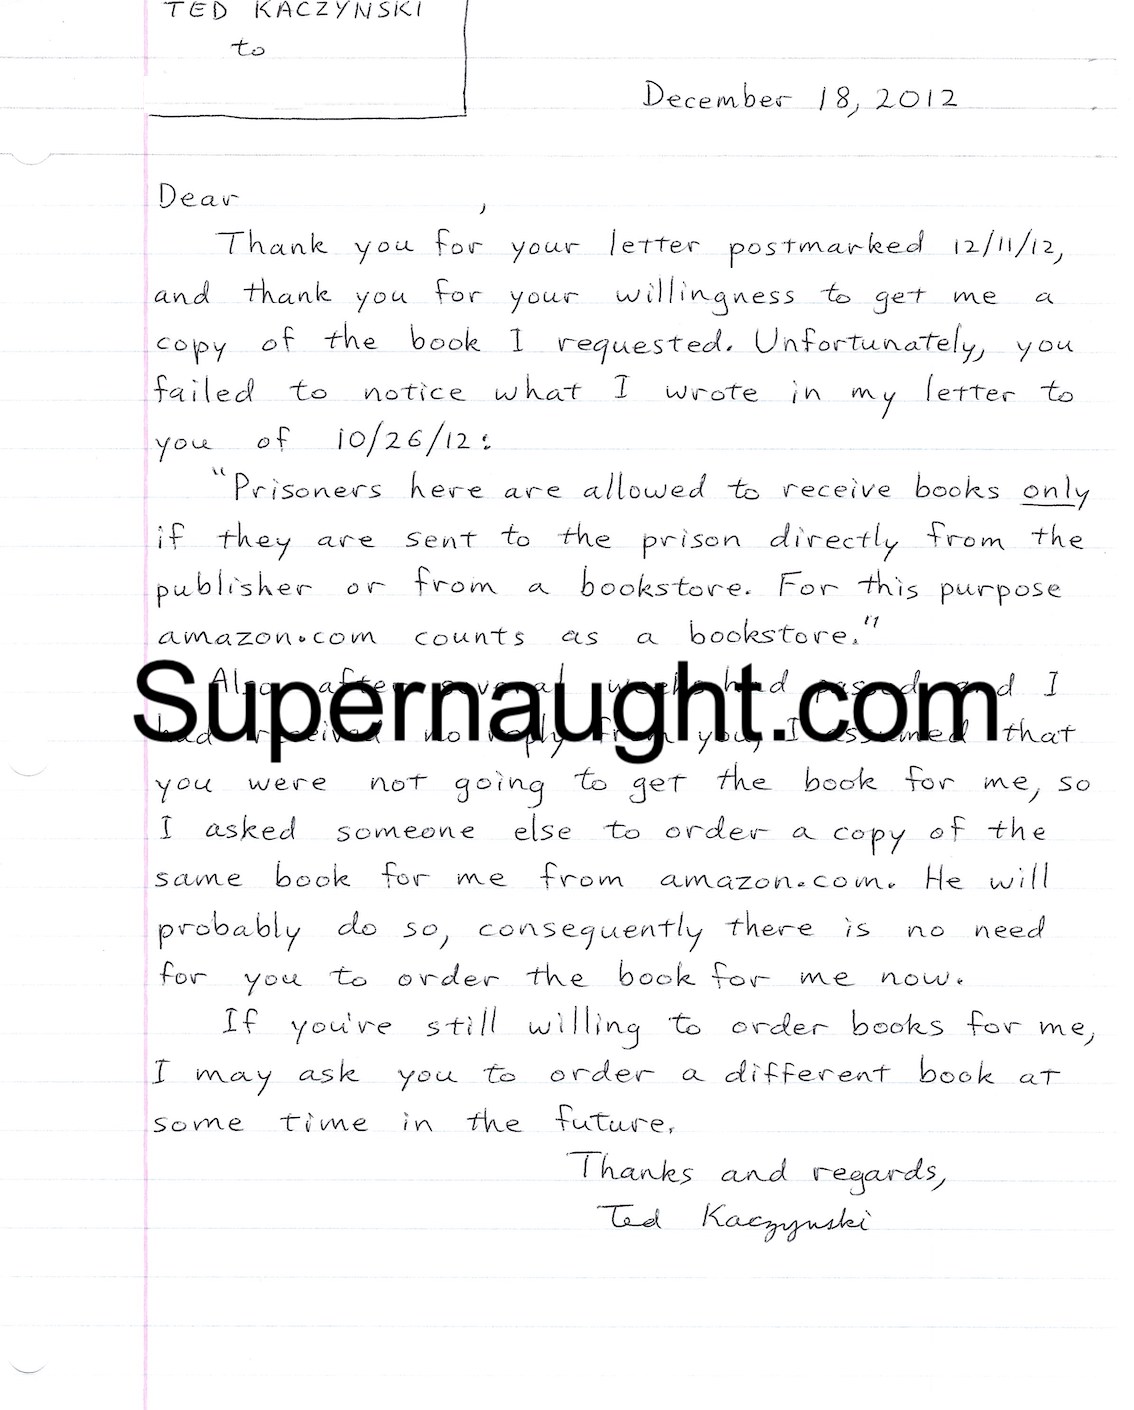 TED KACZYNSKI
to
December 18, 2012
Dear ,
Thank you for your letter postmarked 12/11/12,
and thank you for your willingness to get me a
copy of the book I requested. Unfortunately, you
failed to notice what I wrote in my letter to
you of 10/26/12:
"Prisoners here are allowed to receive books only
if they are sent to the prison directly from the
publisher or from a bookstore. For this purpose
amazon.com counts as a bookstore."
Also, after several weeks had passed and I
Supernaught.com
had received no reply from you, I assumed that
you were not going to get the book for me, so
I asked someone else to order a copy of the
same book for me from amazon.com. He will
probably do so, consequently there is no need
for you to order the book for me now.
If you've still willing to order books for me,
I may ask you to order a different book at
some time in the future.
Thanks and regards,
Ted Kaczynski